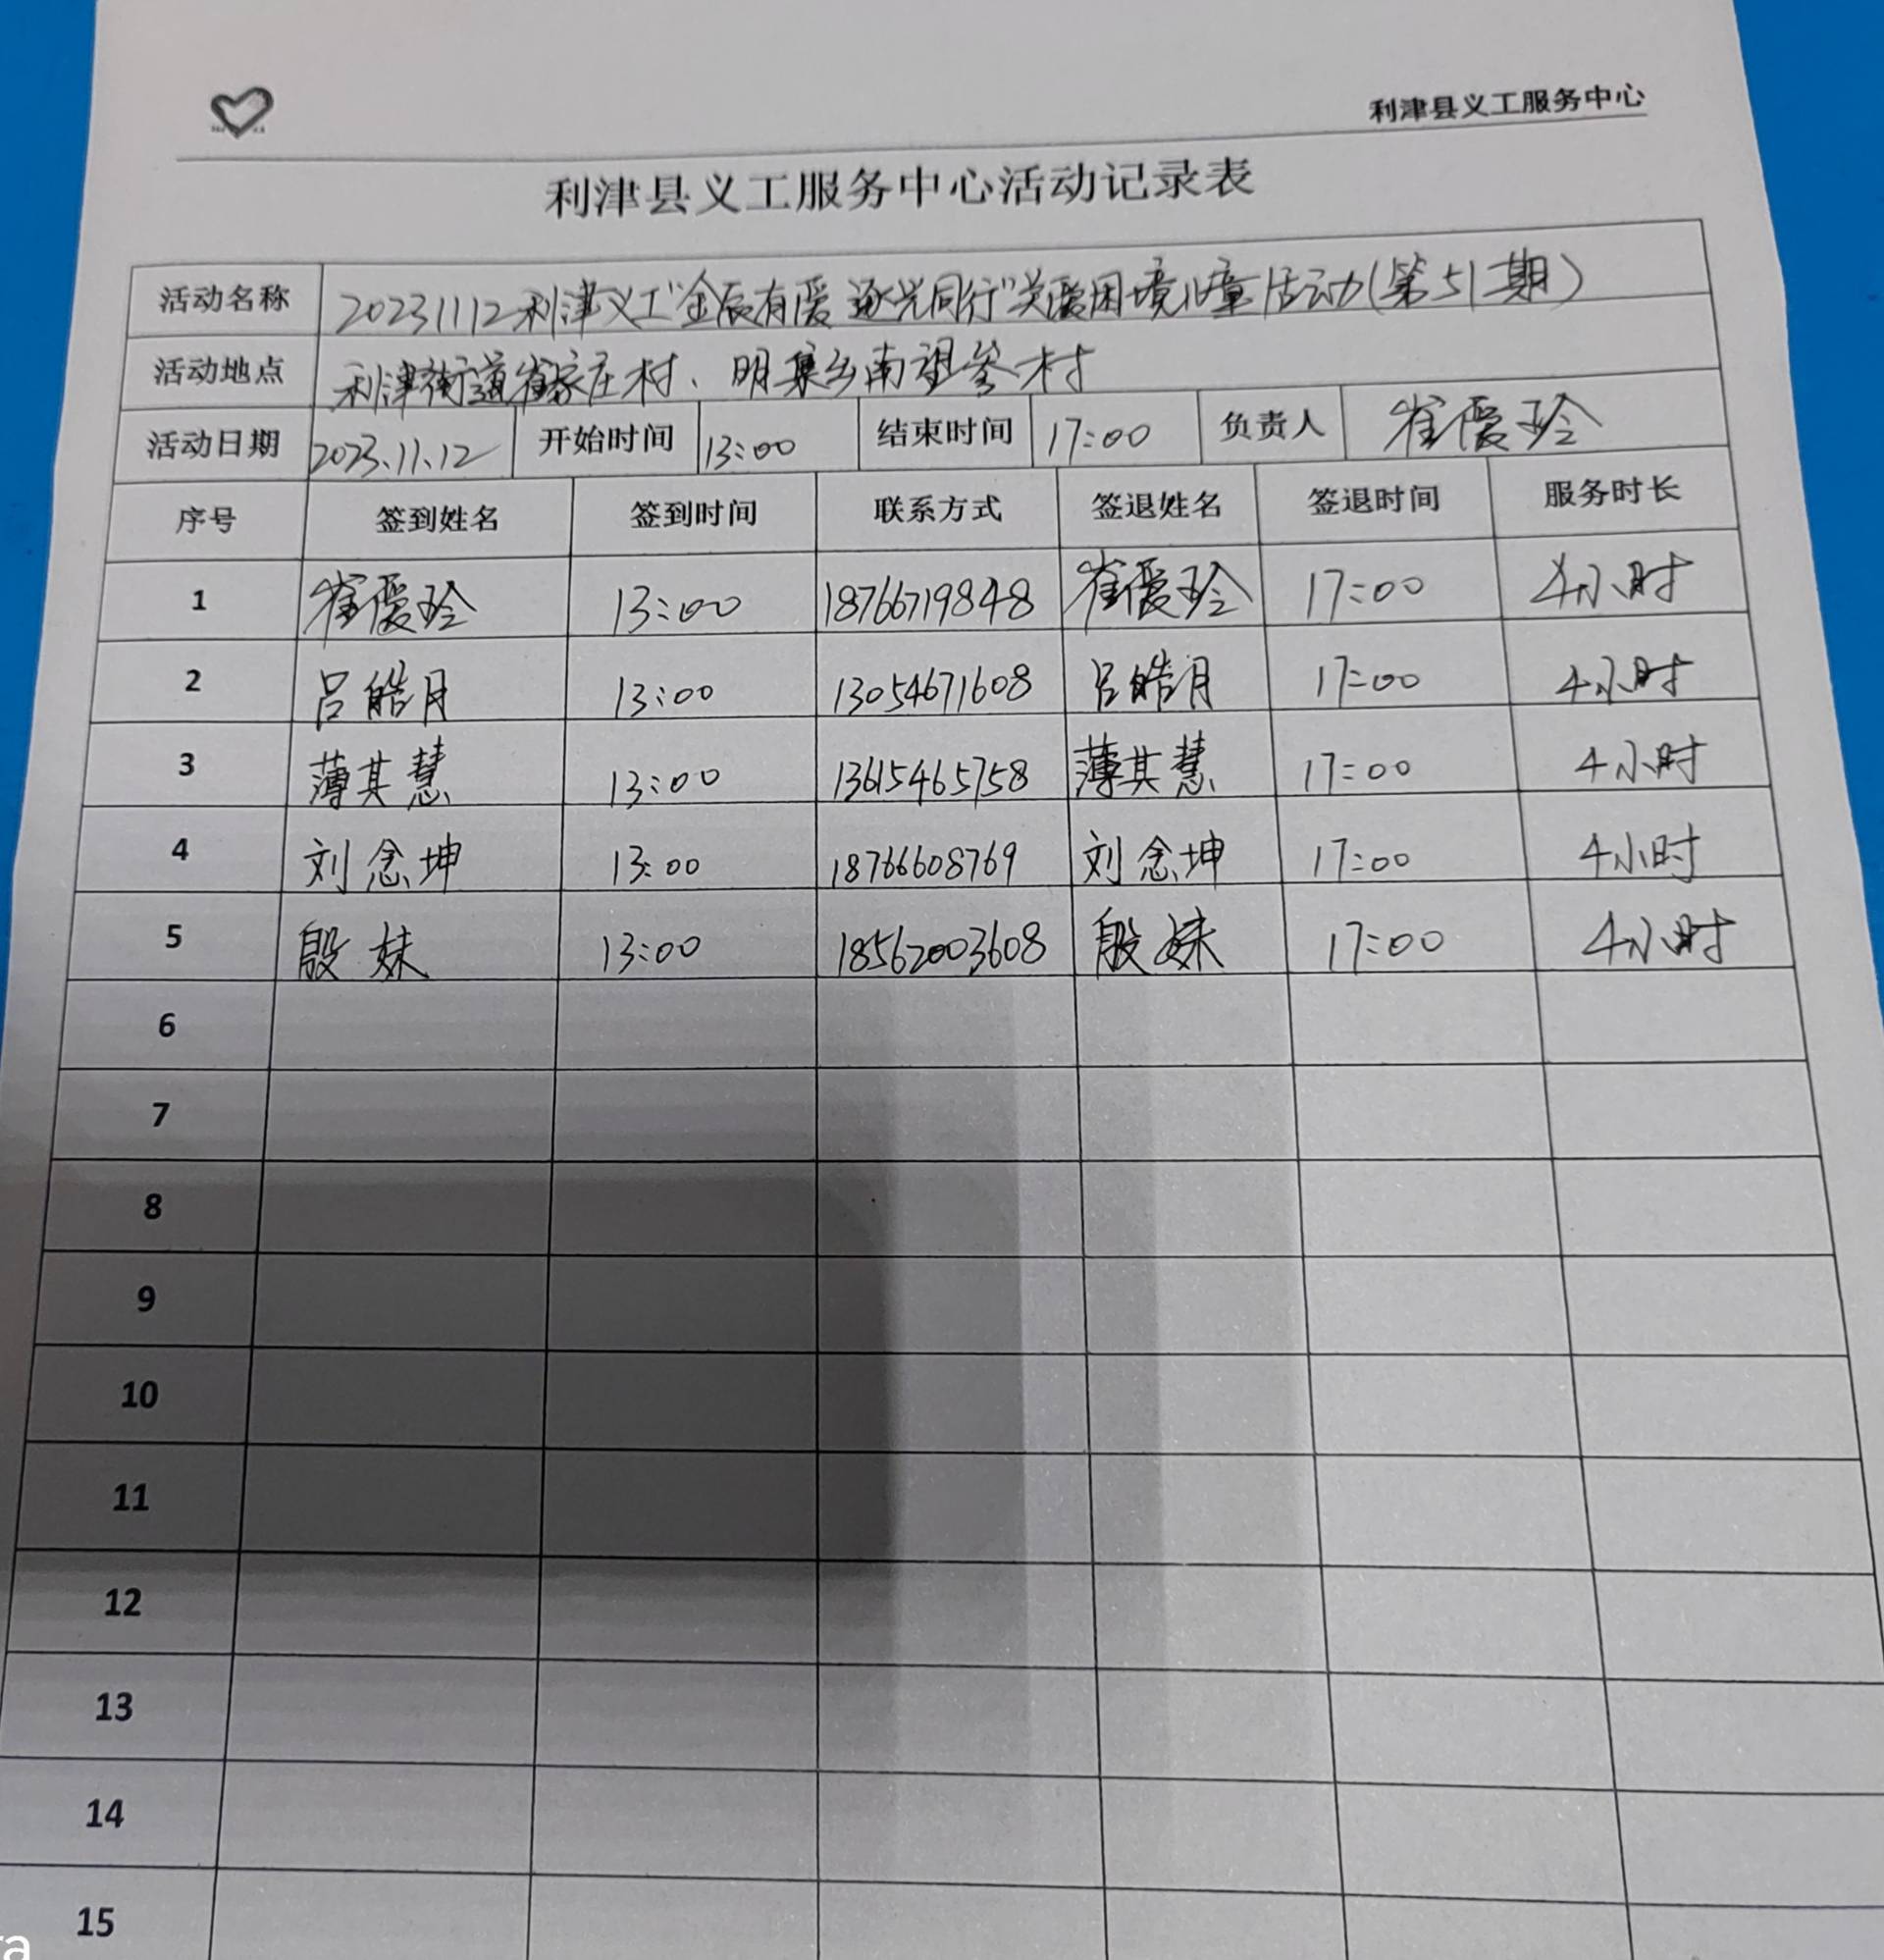 利津县义工服务中心
利津县义工服务中心活动记录表
活动名称 20231112利津义工"金辰有爱 逐光同行"关爱困境儿童活动(第51期)
活动地点 利津街道崔家庄村、明集乡南望参村
活动日期 2023.11.12 开始时间 13:00 结束时间 17:00 负责人 崔爱玲
序号 签到姓名 签到时间 联系方式 签退姓名 签退时间 服务时长
1 崔爱玲 13:00 18766719848 崔爱玲 17:00 4小时
2 吕皓月 13:00 13054671608 吕皓月 17:00 4小时
3 薄其慧 13:00 13615465758 薄其慧 17:00 4小时
4 刘念坤 13:00 18766608769 刘念坤 17:00 4小时
5 殷妹 13:00 18562003608 殷妹 17:00 4小时
6
7
8
9
10
11
12
13
14
15